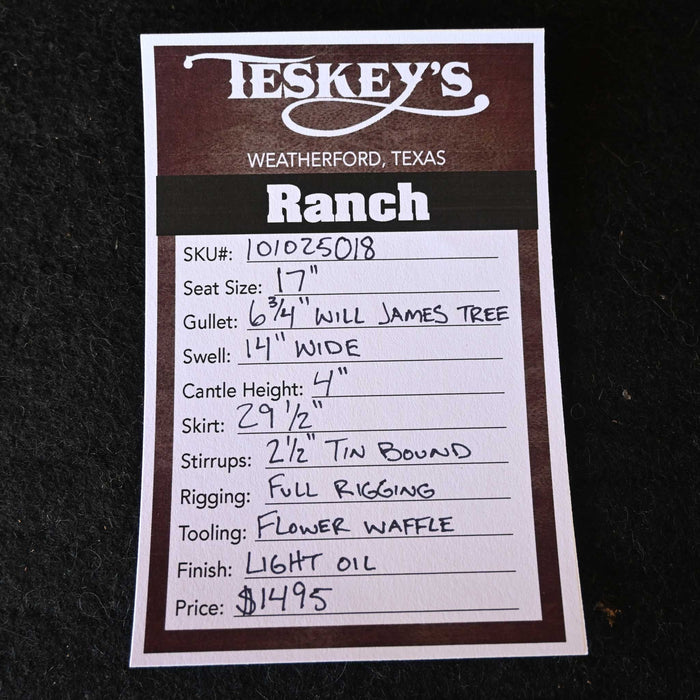 TESKEY'S
WEATHERFORD, TEXAS
Ranch
SKU#: 101025018
Seat Size: 17"
Gullet: 6 3/4" WILL JAMES TREE
Swell: 14" WIDE
Cantle Height: 4"
Skirt: 29 1/2"
Stirrups: 2 1/2" TIN BOUND
Rigging: FULL RIGGING
Tooling: FLOWER WAFFLE
Finish: LIGHT OIL
Price: $1495